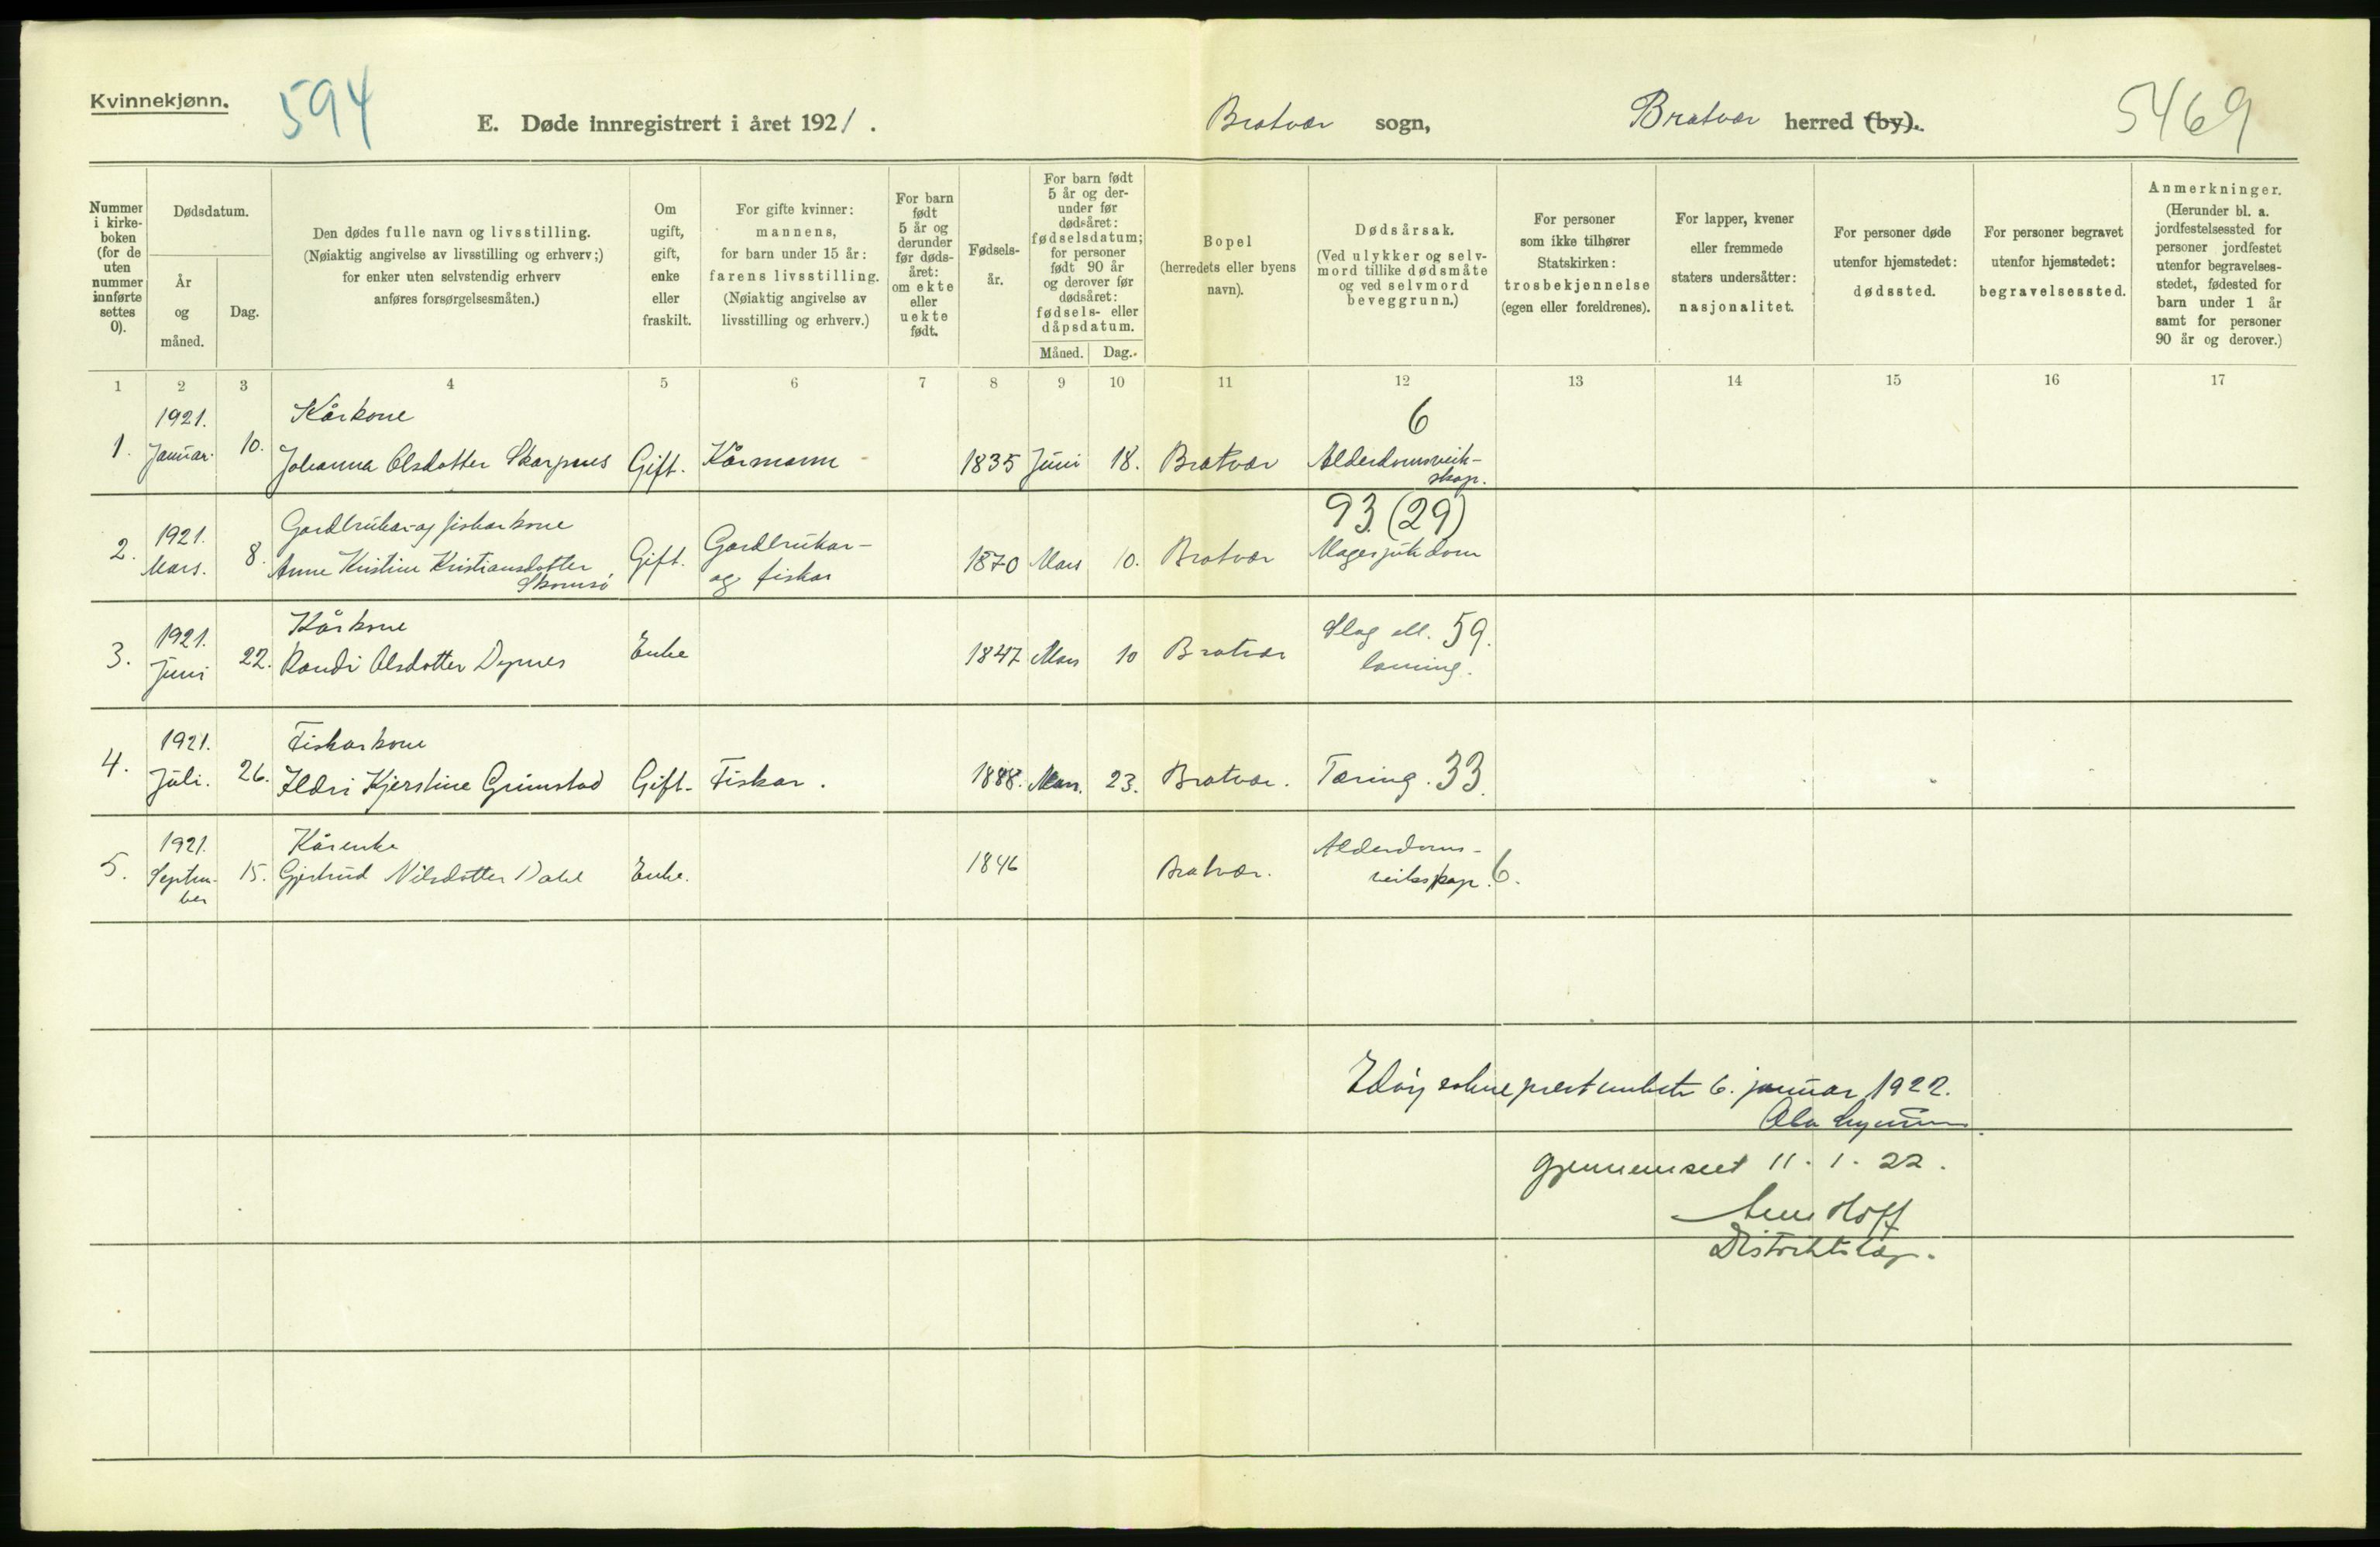 Kvinnekjønn.
594
E. Døde innregistrert i året 1921.
Bratvær sogn,
Bratvær herred (by).
5469
Nummer i kirke- boken (for de uten nummer innførte settes 0).
Dødsdatum.
År og måned.
Dag.
Den dødes fulle navn og livsstilling.
(Nøiaktig angivelse av livsstilling og erhverv;)
for enker uten selvstendig erhverv
anføres forsørgelsesmåten.)
Om ugift, gift, enke eller fraskilt.
For gifte kvinner:
mannens,
for barn under 15 år:
farens livsstilling.
(Nøiaktig angivelse av
livsstilling og erhverv.)
For barn født 5 år og derunder før døds- året: om ekte eller uekte født.
Fødsels- år.
For barn født 5 år og der- under før dødsåret: fødselsdatum; for personer født 90 år og derover før dødsåret: fødsels- eller dåpsdatum.
Måned. Dag.
Bopel
(herredets eller byens
navn).
Dødsårsak.
(Ved ulykker og selv-
mord tillike dødsmåte
og ved selvmord
beveggrunn.)
For personer
som ikke tilhører
Statskirken:
trosbekjennelse
(egen eller foreldrenes).
For lapper, kvener
eller fremmede
staters undersåtter:
nasjonalitet.
For personer døde
utenfor hjemstedet:
dødssted.
For personer begravet
utenfor hjemstedet:
begravelsessted.
Anmerkninger.
(Herunder bl. a.
jordfestelsessted for
personer jordfestet
utenfor begravelses-
stedet, fødested for
barn under 1 år
samt for personer
90 år og derover.)
1 2 3 4 5 6 7 8 9 10 11 12 13 14 15 16 17
1921. Kårkone 6
1. Januar. 10. Johanna Olsdotter Skarpnes Gift. Kårmann 1835 Juni 18. Bratvær Alderdomsveik-
skap.
Gardbrukar- og fiskarkone 93. (29)
2. 1921. Mars. 8. Anne Kristine Kristiansdotter Gift. Gardbrukar- og fiskar 1870 Mars 10. Bratvær Magesjukdom
1921. Kårkone Slag ell. 59.
3. Juni 22. Randi Olsdotter Dyrnes Enke 1847 Mars 10 Bratvær laming.
1921. Fiskarkone
4. Juli. 26. Ildri Kjerstine Grimstad Gift. Fiskar. 1888. Mars. 23. Bratvær. Tæring. 33.
1921. Kårenke Alderdoms-
5. Septem- ber 15. Gjertrud Nilsdotter Dahl Enke. 1846 Bratvær. veikskap. 6.
Edøy sokneprestembete 6. januar 1922.
Gjennemseet 11.1.22.
Hoff
Distriktslæge.